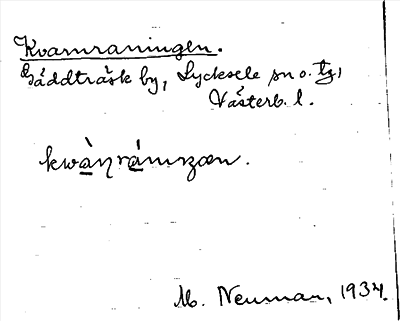 Kvarnraningen.
Gäddträsk by, Lycksele sn o. tg,
Västerb. l.
M. Neuman, 1934.